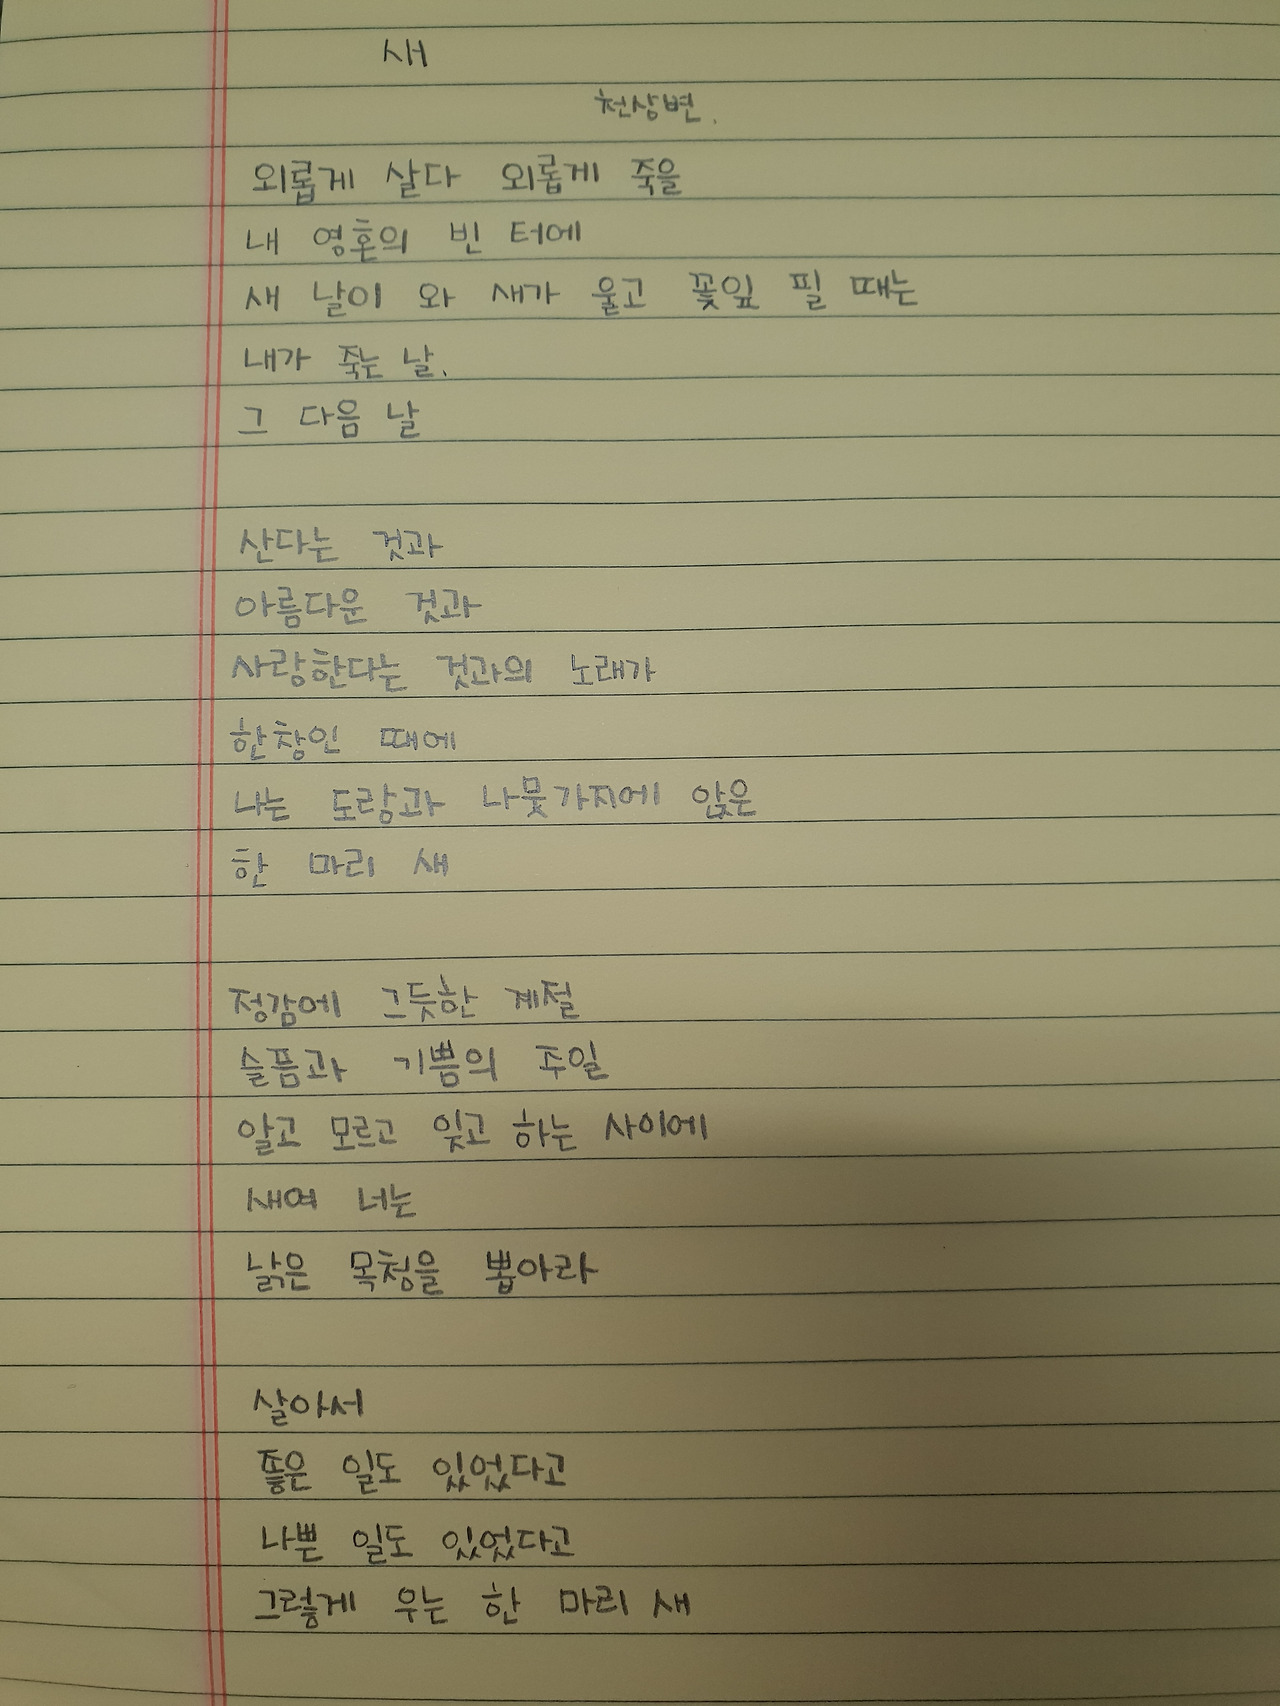 새
천상변.
외롭게 살다 외롭게 죽을
내 영혼의 빈 터에
새 날이 와 새가 울고 꽃잎 필 때는
내가 죽는 날.
그 다음 날
산다는 것과
아름다운 것과
사랑한다는 것과의 노래가
한창인 때에
나는 도랑과 나뭇가지에 앉은
한 마리 새
정감에 그듯한 계절
슬픔과 기쁨의 주일
알고 모르고 잊고 하는 사이에
새여 너는
낡은 목청을 뽑아라
살아서
좋은 일도 있었다고
나쁜 일도 있었다고
그렇게 우는 한 마리 새